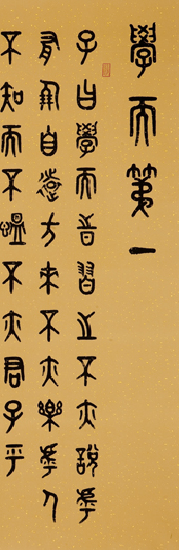 學而第一
子曰學而時習之不亦說乎
有朋自遠方來不亦樂乎人
不知而不慍不亦君子乎